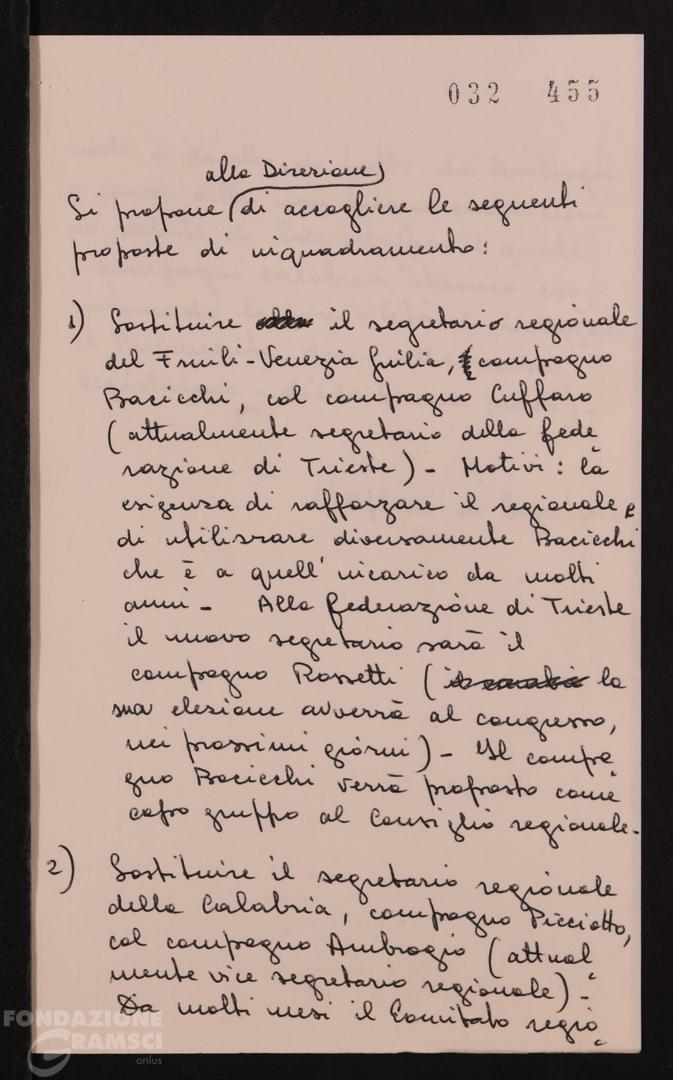 032 455
alla Direzione
Si propone di accogliere le seguenti
proposte di inquadramento:
1) Sostituire il segretario regionale
del Friuli-Venezia Giulia, compagno
Bacicchi, col compagno Cuffaro
(attualmente segretario della fede
razione di Trieste) - Motivi: la
esigenza di rafforzare il regionale e
di utilizzare diversamente Bacicchi
che è a quell'incarico da molti
anni - Alla federazione di Trieste
il nuovo segretario sarà il
compagno Rossetti ( la
sua elezione avverrà al congresso,
nei prossimi giorni) - Il compa
gno Bacicchi verrà proposto come
capo gruppo al Consiglio regionale.
2) Sostituire il segretario regionale
della Calabria, compagno Picciotto,
col compagno Ambrogio (attual
mente vice segretario regionale) -
Da molti mesi il Comitato regio
FONDAZIONE
GRAMSCI
onlus